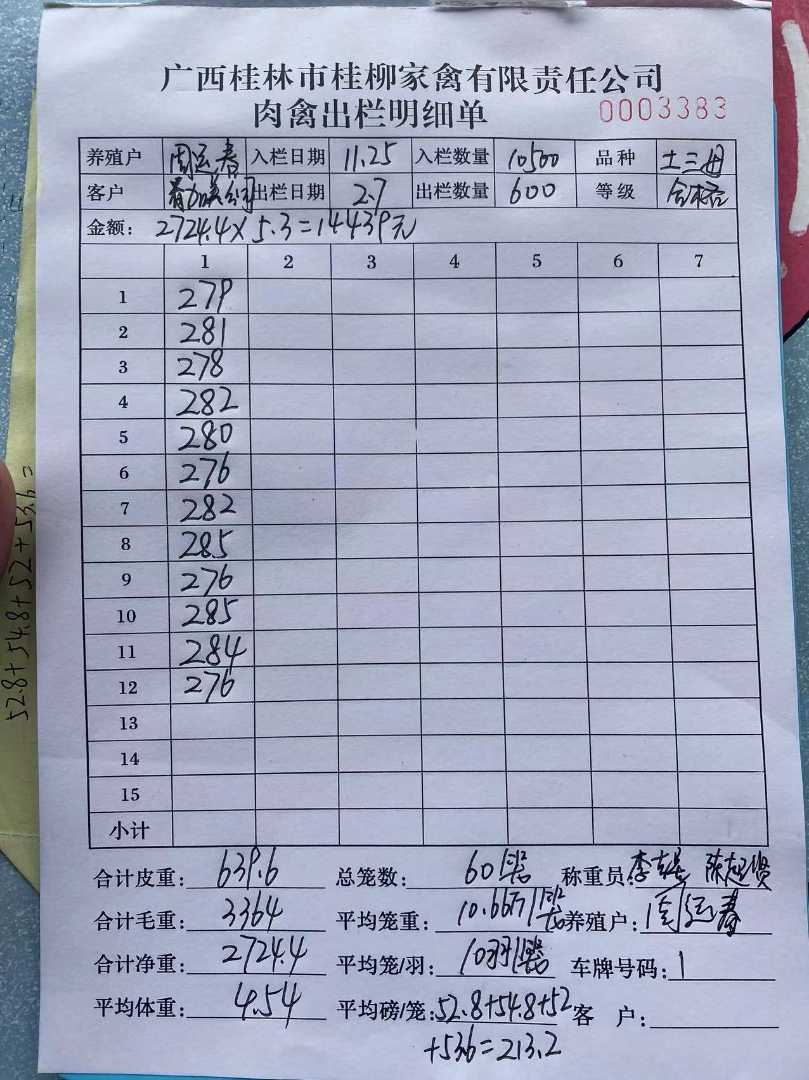 广西桂林市桂柳家禽有限责任公司
肉禽出栏明细单 0003383
养殖户 周运春 入栏日期 11.25 入栏数量 10500 品种 土三母
客户 公司 出栏日期 2.7 出栏数量 600 等级 合格
金额: 2724.4×5.3=14439元
1 2 3 4 5 6 7
1 279
2 281
3 278
4 282
5 280
6 276
7 282
8 285
9 276
10 285
11 284
12 276
13
14
15
小计
合计皮重: 639.6 总笼数: 60笼 称重员: 李 陈超贤
合计毛重: 3364 平均笼重: 10.66斤/笼 养殖户: 周运春
合计净重: 2724.4 平均笼/羽: 10羽/笼 车牌号码: 1
平均体重: 4.54 平均磅/笼: 52.8+54.8+52 客 户:
+53.6=213.2
52.8+54.8+52+53.6=